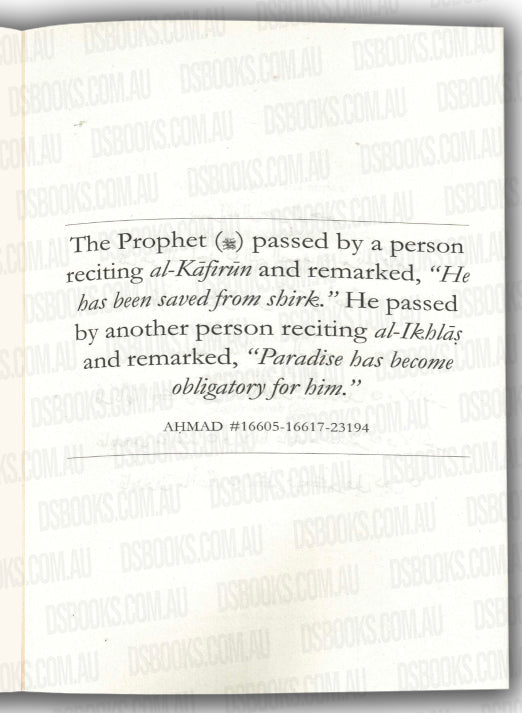 The Prophet (ﷺ) passed by a person
reciting al-Kāfirūn and remarked, “He
has been saved from shirk.” He passed
by another person reciting al-Ikhlāṣ
and remarked, “Paradise has become
obligatory for him.”
AḤMAD #16605-16617-23194
DSBOOKS.COM.AU